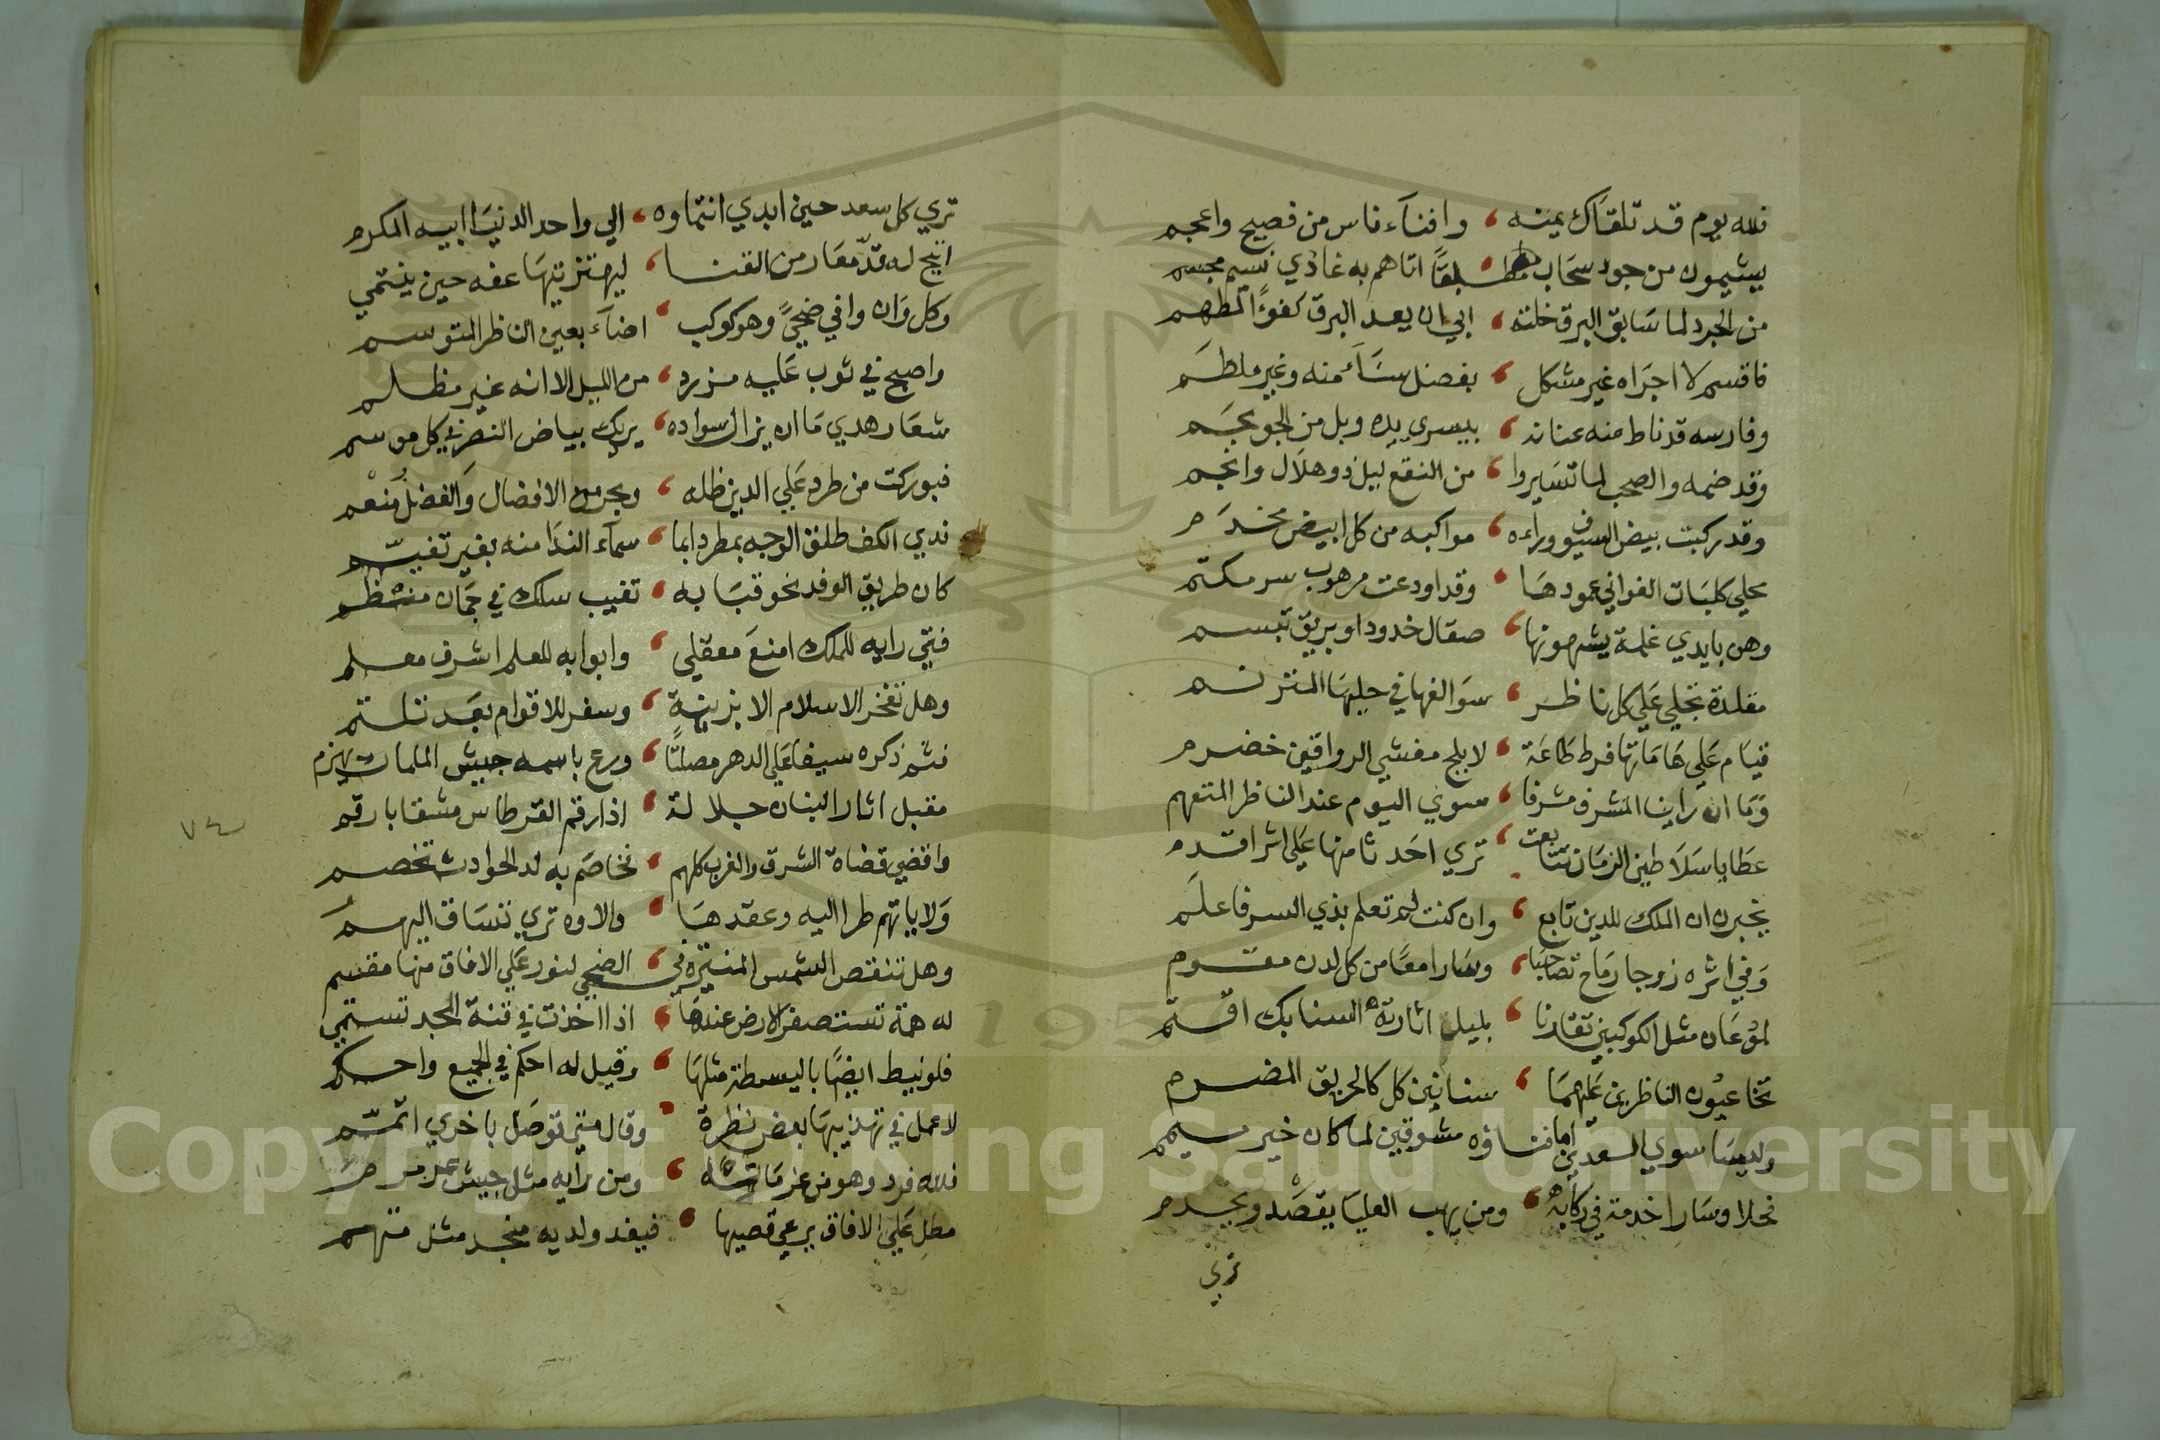 فلله يوم قد تلقاك يمنه ، وافناء ناس من فصيح واعجم
يشيمون من جود سحاب مطبقا اتاهم به غادي نسيم مجسم
من الجرد لما سابق البرق خلته ، ابي ان يعد البرق كفوًا لمطهم
فاقسم لا اجراه غير مشكل ، بفضل سناء منه وغير ملطم
وفارسه قد ناط منه عنانه ، بيسري يديه وبل من الجو يحم
وقد ضمه والصحب لما تسايروا ، من النقع ليل ذو هلال وانجم
وقد ركبت بيض السيوف وراءه ، مواكبه من كل ابيض مخذم
بحلي كلبات الغواني غمودها ، وقد اودعت مرهوب سر مكتم
وهن بايدي غلمة يشهرونها ، صقال خدود او بريق تبسم
مقلدة تجلي علي كل ناظر ، سوالفها في حليها المترنم
قيام علي هاماتها فرط طاعة ، لابلج مغشي الرواقين خضرم
وما ان راينا المشرف مشرفا ، سوي اليوم عند الناظر المتفهم
عطايا سلاطين الزمان تتابعت ، تري احدثا منها علي اثر اقدم
يخبرن ان الملك للدين تابع ، وان كنت لم تعلم بذي السر فاعلم
وفي اثره زوجا رماح تصاحبا ، وسارا معًا من كل لدن مقوم
لموعان مثل الكوكبين تقارنا ، بليل اثارته السنابك اقتم
تخا عيون الناظرين عليهما ، سنانين كل كالحريق المضرم
وليسا سوي السعدين اما فناؤه مشوقين لما كان خير ميمم
فحلا وسارا خدمة في ركابه ، ومن يهب العليا يقصد ويخدم
تري
تري كل سعد حين ابدي انتماوه ، الي واحد الدنيا ابيه المكرم
اتيح له قد معار من القنا ، ليهتز تيها عفه حين ينتمي
وكل وان وافي ضحيً وهو كوكب ، اضاء بعين الناظر المتوسم
واصبح في ثوب عليه مزرد ، من الليل الا انه غير مظلم
شعار هدي ما ان يزال سواده ، يريك بياض النصر في كل موسم
فبوركت من طرد علي الدين ظله ، وبحر من الافضال والفضل منعم
ندي الكف طلق الوجه بمطردا بما ، سماء الندا منه بغير تغيم
كان طريق الوفد نحو قبابه ، تغيب سلك في جمان منظم
فتي رايه للملك امنع معقل ، وابوابه للعلم اشرف معلم
وهل تفخر الاسلام الا بزينة ، وسفر للاقوام بعد تلثم
فشم ذكره سيفا علي الدهر مصلتًا ، ورع باسمه جيش الملمات يهزم
مقبل اثار البنان جلالة ، اذا رقم القرطاس مشقا بارقم
واقضي قضاة الشرق والغرب كلهم ، تخاصم به لد الحوادث تخصم
ولاياتهم طرا اليه وعقدها ، والاوه تري تنساق اليهم
وهل تنقص الشمس المنيرة في الضحي ، لنور علي الافاق منها مقسم
له همة تستصغر الارض عندها ، اذا اخذت في قنة المجد تستمي
فلو نيط ايضًا بالبسيطة مثلها ، وقيل له احكم في الجميع واحكم
لاعمل في تهذيبها بعض نظرة ، وقال متي توصل باخري اتمم
فلله فرد وهو من عزماته ، ومن رايه مثل جيش عرمرم
مطل علي الافاق يرعي قصيها ، فيغد ولديه منجد مثل متهم
٧٤